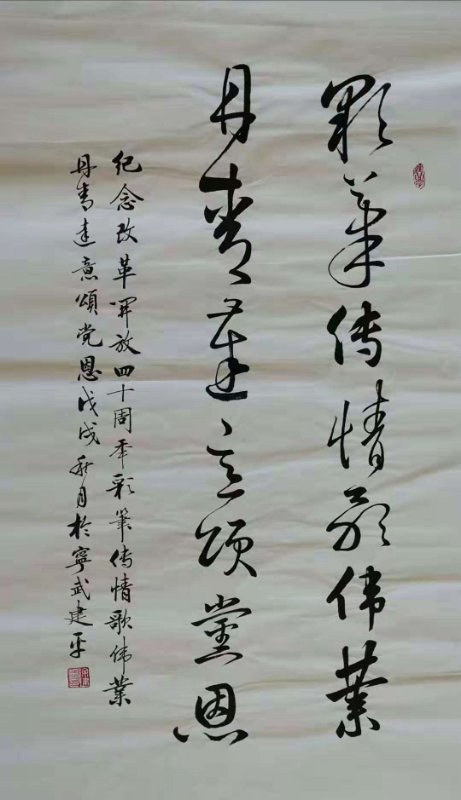 彩笔传情歌伟業
丹青達意颂党恩
纪念改革開放四十周年彩筆传情歌伟業
丹青達意頌党恩戊戌秋月於寧武建平